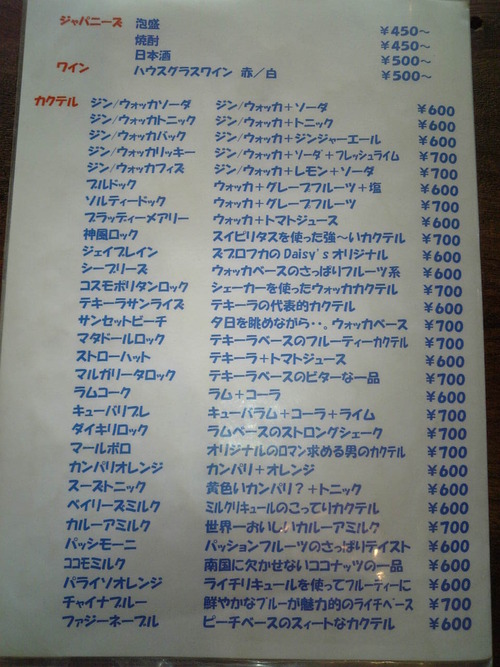 ジャパニーズ 泡盛 ¥450～
焼酎 ¥450～
日本酒 ¥500～
ワイン ハウスグラスワイン 赤／白 ¥500～
カクテル ジン/ウォッカソーダ ジン/ウォッカ＋ソーダ ¥600
ジン/ウォッカトニック ジン/ウォッカ＋トニック ¥600
ジン/ウォッカバック ジン/ウォッカ＋ジンジャーエール ¥600
ジン/ウォッカリッキー ジン/ウォッカ＋ソーダ＋フレッシュライム ¥700
ジン/ウォッカフィズ ジン/ウォッカ＋レモン＋ソーダ ¥700
ブルドック ウォッカ＋グレープフルーツ＋塩 ¥600
ソルティードック ウォッカ＋グレープフルーツ ¥700
ブラッディーメアリー ウォッカ＋トマトジュース ¥600
神風ロック スイピリタスを使った強～いカクテル ¥700
ジェイプレイン ズブロフカのDaisy'sオリジナル ¥600
シーブリーズ ウォッカベースのさっぱりフルーツ系 ¥600
コスモポリタンロック シェーカーを使ったウォッカカクテル ¥700
テキーラサンライズ テキーラの代表的カクテル ¥600
サンセットビーチ 夕日を眺めながら・・。ウォッカベース ¥700
マタドールロック テキーラベースのフルーティーカクテル ¥700
ストローハット テキーラ＋トマトジュース ¥600
マルガリータロック テキーラベースのビターな一品 ¥700
ラムコーク ラム＋コーラ ¥600
キューバリブレ キューバラム＋コーラ＋ライム ¥700
ダイキリロック ラムベースのストロングシェーク ¥700
マールボロ オリジナルのロマン求める男のカクテル ¥700
カンパリオレンジ カンパリ＋オレンジ ¥600
スーズトニック 黄色いカンパリ？＋トニック ¥600
ベイリーズミルク ミルクリキュールのこってりカクテル ¥600
カルーアミルク 世界一おいしいカルーアミルク ¥700
パッシモーニ パッションフルーツのさっぱりテイスト ¥600
ココモミルク 南国に欠かせないココナッツの一品 ¥600
パライソオレンジ ライチリキュールを使ってフルーティーに ¥600
チャイナブルー 鮮やかなブルーが魅力的のライチベース ¥700
ファジーネーブル ピーチベースのスィートなカクテル ¥600